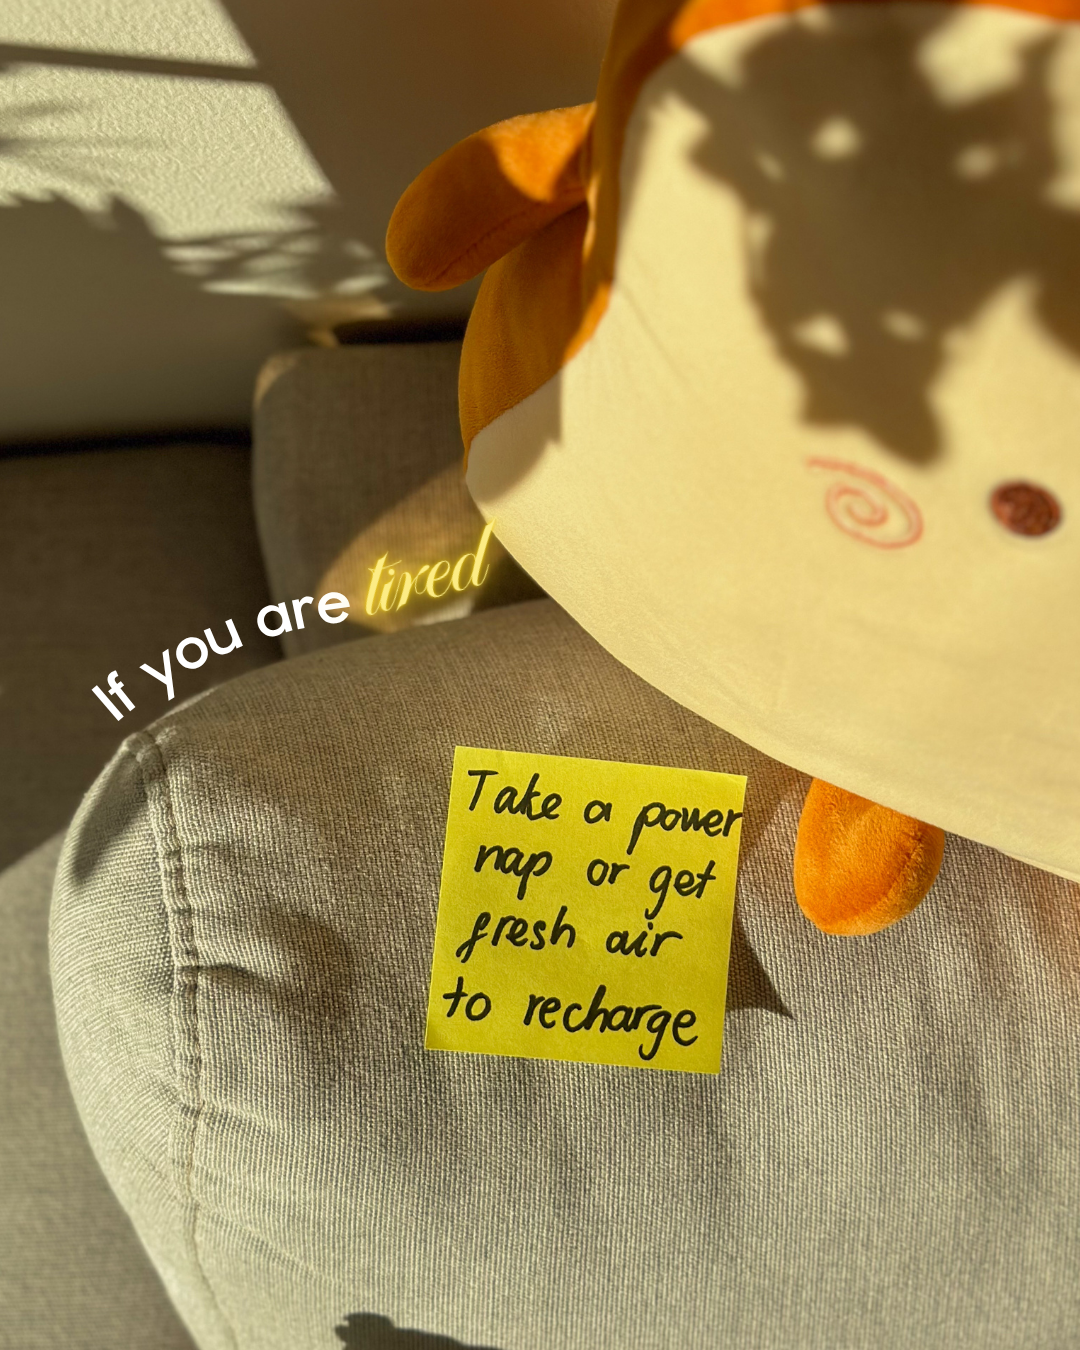 If you are tired
Take a power
nap or get
fresh air
to recharge